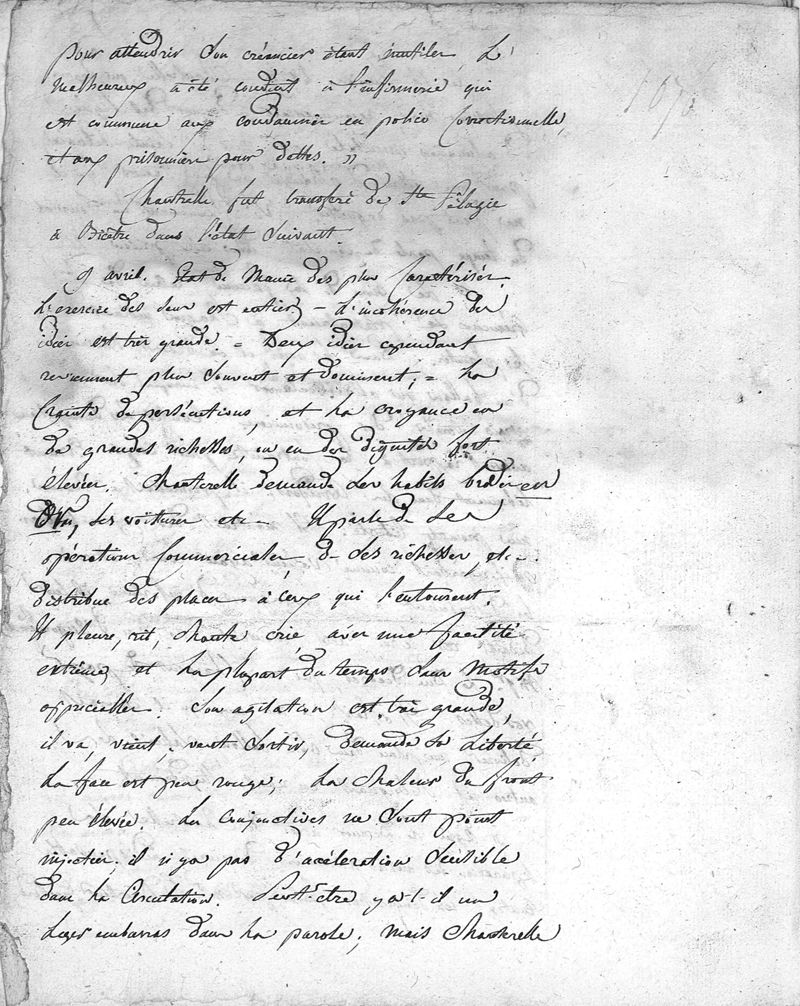 pour attendrir son créancier étant inutiles, le
malheureux a été conduit à l'infirmerie qui
est commune aux condamnés en police correctionnelle,
et aux prisonniers pour dettes. »
Chanterelle fut transféré de Ste Pélagie
à Bicêtre dans l'état suivant.
9 avril. Etat de Manie des plus caractérisés.
L'exercice des sens est entier, – L'incohérence des
idées est très grande = Deux idées cependant
reviennent plus souvent et dominent; = La
crainte de persécutions, et la croyance en
de grandes richesses, ou en des dignités fort
élevées. Chanterelle demande des habits brodés en
or, des voitures etc – Il parle de ses
opérations commerciales, de ses richesses, etc –
distribue des places à ceux qui l'entourent.
Il pleure, rit, chante, crie avec une facilité
extrême, et la plupart du temps sans motifs
appréciables. Son agitation est très grande,
il va, vient, veut sortir, demande sa liberté
La face est peu rouge; La chaleur du front
peu élevée. Les conjonctives ne sont point
injectées; il n'y a pas d'accélération sensible
dans la circulation. Peut-être y a-t-il un
léger embarras dans la parole; mais Chanterelle